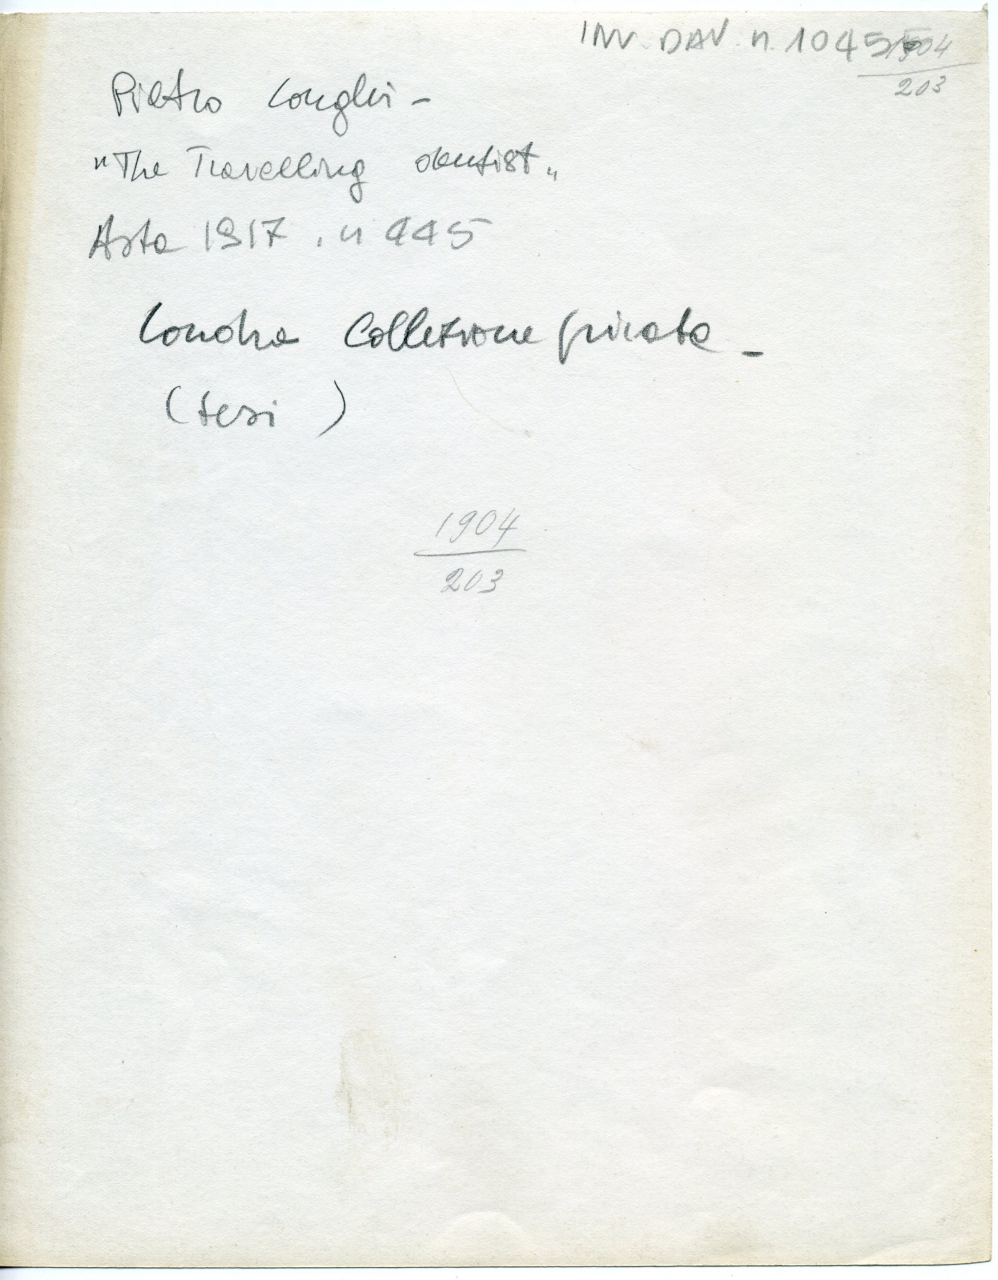 INV. DAV. n. 10455
1904
203
Pietro Longhi -
"The Travelling dentist"
Asta 1917, n 445
Londra Collezione privata -
(tesi )
1904
203